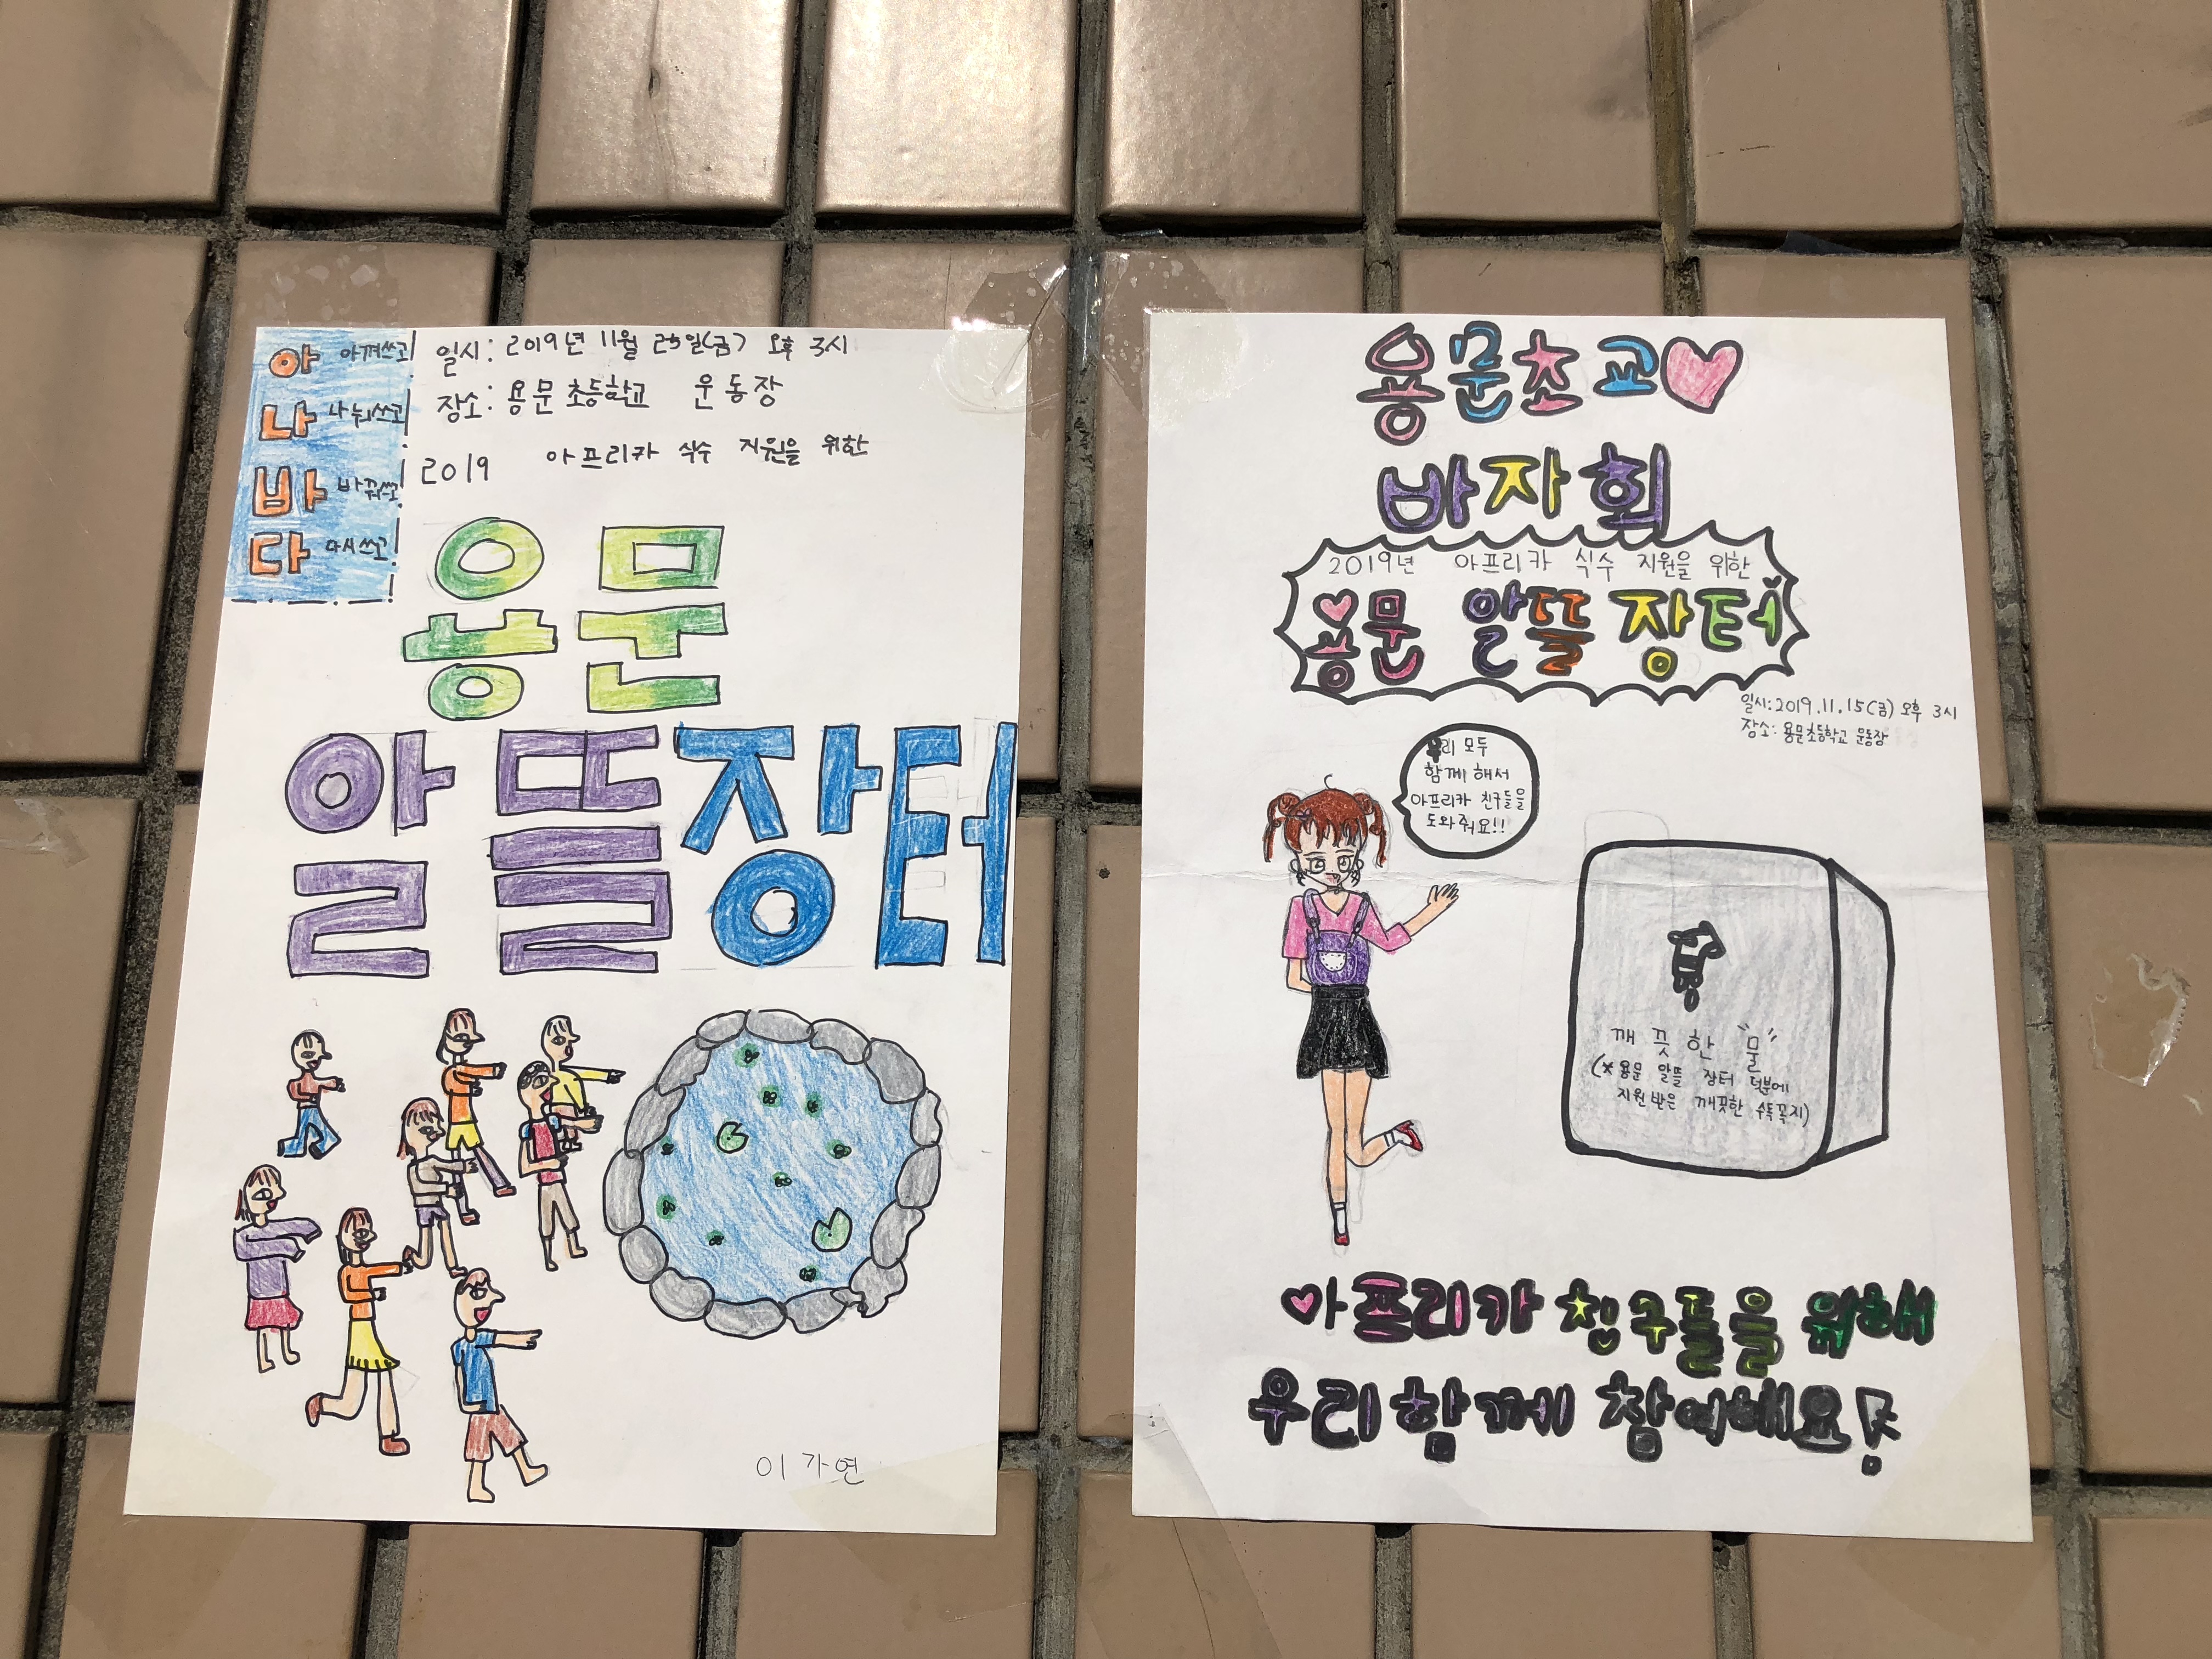 아 아껴쓰고
나 나눠쓰고
바 바꿔쓰고
다 다시쓰고!
일시: 2019년 11월 (금) 오후 3시
장소: 용문초등학교 운동장
2019 아프리카 식수 지원을 위한
용문
알뜰장터
이가연
용문초교
바자회
2019년 아프리카 식수 지원을 위한
용문 알뜰 장터
일시:2019.11.15(금) 오후 3시
장소: 용문초등학교 운동장
우리 모두
함께 해서
아프리카 친구들을
도와줘요!!
깨끗한 "물"
(*용문 알뜰 장터 덕분에
지원받은 깨끗한 수독꼭지)
아프리카 친구들을 위해
우리 함께 참여해요!